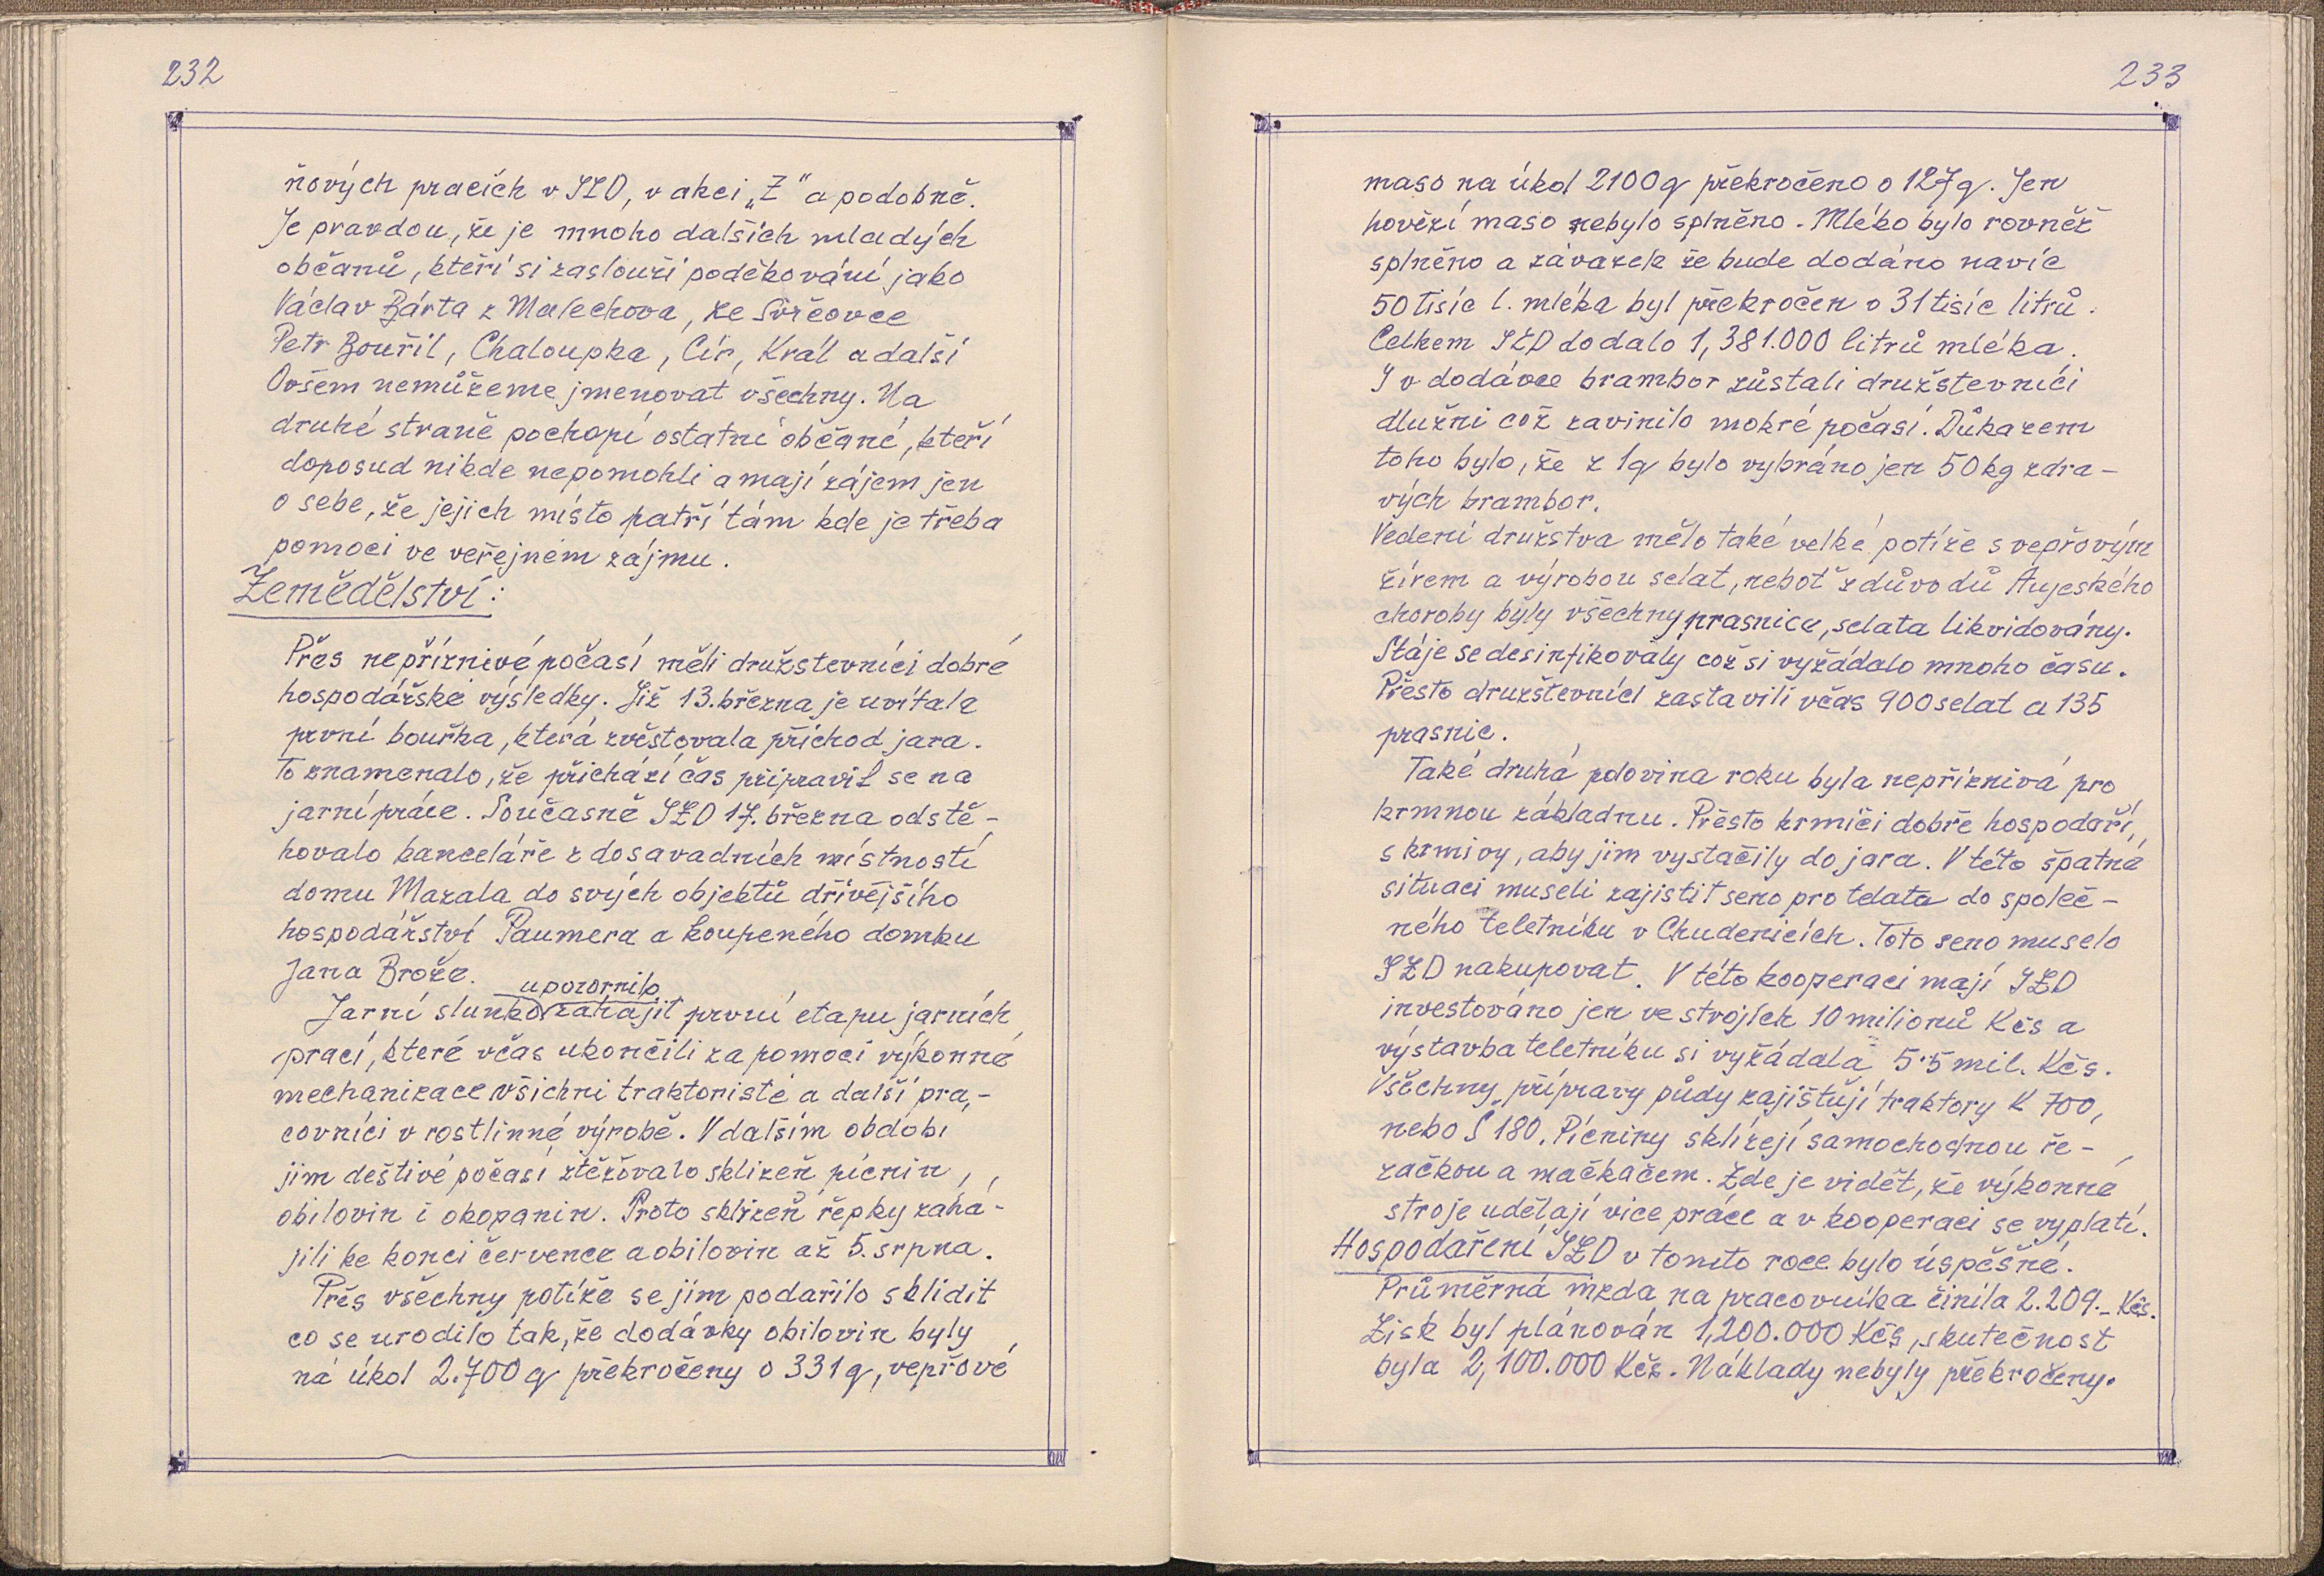 232
ňových pracích v JZD, v akci „Z" a podobně.
Je pravdou, že je mnoho dalších mladých
občanů, kteří si zaslouží poděkování jako
Václav Bárta z Malechova, ze Svrčovce
Petr Bouřil, Chaloupka, Cír, Král a další
Ovšem nemůžeme jmenovat všechny. Na
druhé straně pochopí ostatní občané, kteří
doposud nikde nepomohli a mají zájem jen
o sebe, že jejich místo patří tám kde je třeba
pomoci ve veřejném zájmu.
Zemědělství:
Přes nepříznivé počasí měli družstevníci dobré
hospodářské výsledky. Již 13. března je uvítala
první bouřka, která zvěstovala příchod jara.
To znamenalo, že přichází čas připravit se na
jarní práce. Současně JZD 17. března odstě-
hovalo kanceláře z dosavadních místností
domu Mazala do svých objektů dřívějšího
hospodářství Paumera a koupeného domku
Jana Brože.
upozornilo
Jarní slunko zahájit první etapu jarních
prací, které včas ukončili za pomoci výkonné
mechanizace všichni traktoristé a další pra-
covníci v rostlinné výrobě. V dalším období
jim deštivé počasí ztěžovalo sklizeň pícnin,
obilovin i okopanin. Proto sklizeň řepky zahá-
jili ke konci července a obilovin až 5. srpna.
Přes všechny potíže se jim podařilo sklidit
co se urodilo tak, že dodávky obilovin byly
ná úkol 2.700 q překročeny o 331 q, vepřové
233
maso na úkol 2100 q překročeno o 127 q. Jen
hovězí maso nebylo splněno. Mléko bylo rovněž
splněno a závazek že bude dodáno navíc
50 tisíc l. mléka byl překročen o 31 tisíc litrů.
Celkem JZD dodalo 1,381.000 litrů mléka.
I v dodávce brambor zůstali družstevníci
dlužni což zavinilo mokré počasí. Důkazem
toho bylo, že z 1q bylo vybráno jen 50 kg zdra-
vých brambor.
Vedení družstva mělo také velké potíže s vepřovým
žírem a výrobou selat, neboť z důvodů Aujeského
choroby byly všechny prasnice, selata likvidovány.
Stáje se desinfikovaly což si vyžádalo mnoho času.
Přesto družstevníci zastavili včas 900 selat a 135
prasnic.
Také druhá polovina roku byla nepříznivá pro
krmnou základnu. Přesto krmiči dobře hospodaří,
s krmivy, aby jim vystačily do jara. V této špatné
situaci museli zajistit seno pro telata do společ-
ného teletníku v Chudenicích. Toto seno muselo
JZD nakupovat. V této kooperaci mají JZD
investováno jen ve strojích 10 milionů Kčs a
výstavba teletníku si vyžádala 5.5 mil. Kčs.
Všechny přípravy půdy zajištují traktory K 700,
nebo Š 180. Pícniny sklízejí samochodnou ře-
začkou a mačkačem. Zde je vidět, že výkonné
stroje udělají více práce a v kooperaci se vyplatí.
Hospodaření JZD v tomto roce bylo úspěšné.
Průměrná mzda na pracovníka činila 2.209.- Kčs.
Zisk byl plánován 1,200.000 Kčs, skutečnost
byla 2,100.000 Kčs. Náklady nebyly překročeny.